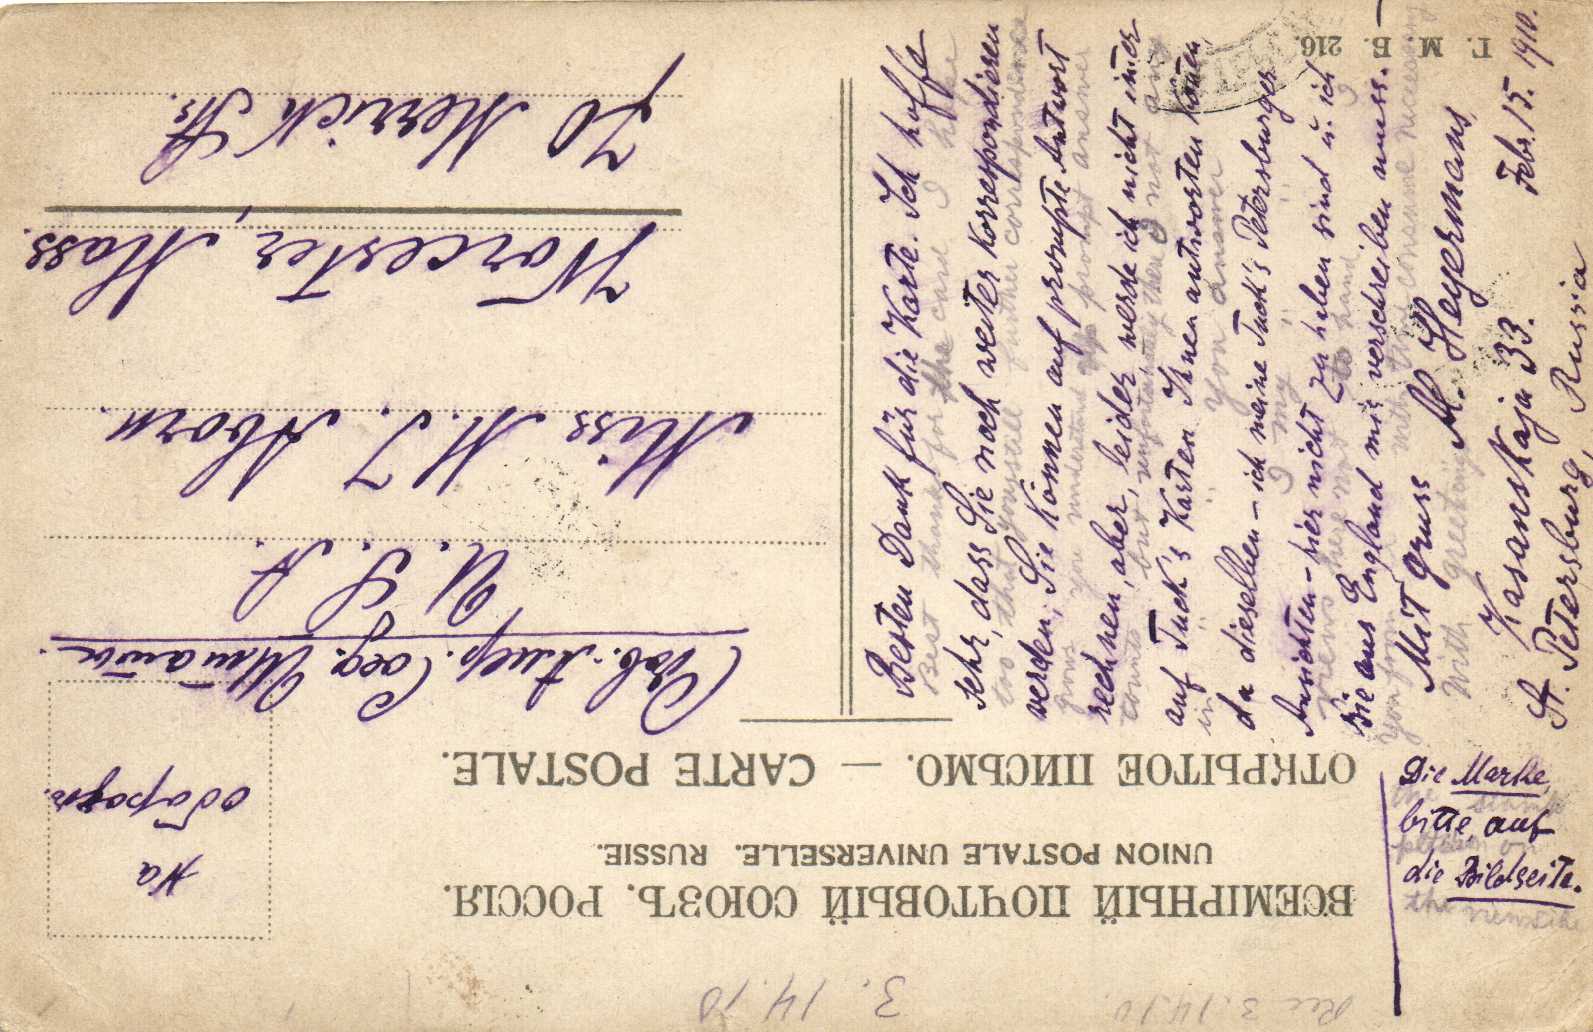 ВСЕМІРНЫЙ ПОЧТОВЫЙ СОЮЗЪ. РОССІЯ.
UNION POSTALE UNIVERSELLE. RUSSIE.
ОТКРЫТОЕ ПИСЬМО. — CARTE POSTALE.
на
оборотѣ.
U. S. A.
Miss M. J. Aborn.
Worcester, Mass.
70 Merrick St.
Г. М. Б. 216.
Febr. 15. 1910.
Besten Dank für die Karte. Ich hoffe
sehr, dass Sie noch weiter korrespondieren
werden; Sie können auf prompte Antwort
rechnen, aber, leider, werde ich nicht imer
auf Tuck's Karten Ihnen antworten könen,
da dieselben – ich meine Tuck's Petersburger
Ansichten – hier nicht zu haben sind u. ich
sie aus England mir verschreiben muss.
Mit Gruss M. Heyermans,
Kasanskaja 33.
St. Petersburg, Russia
Die Marke,
bitte, auf
die Bildseite.
Best thanks for the card I hope
too that you still further correspondence
you understand prompt answer
but, unfortunately then I not
in you answer
I my
views here not to hand I
With greeting
the stamp
on
the viewside
Rec 3.14.10.
3.14.10